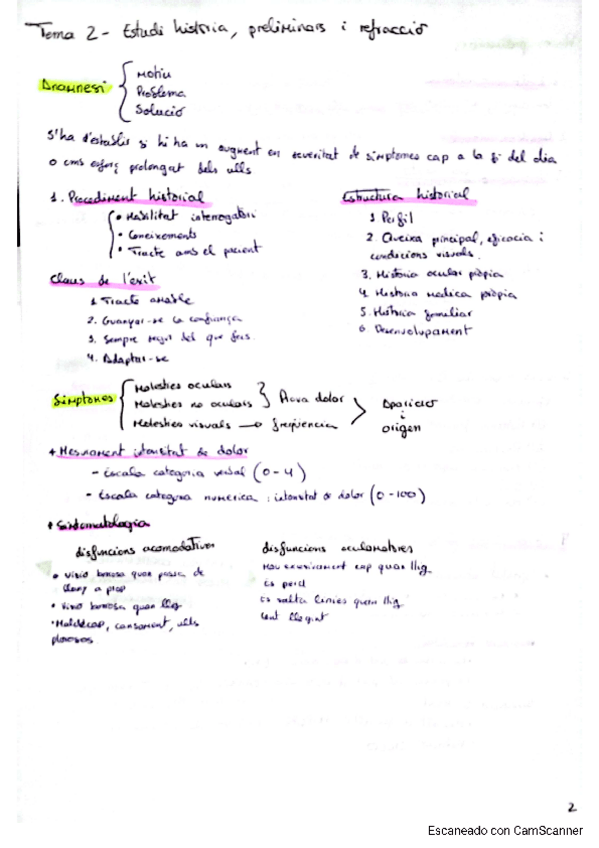 Tema 2 - Estudi història, preliminars i refracció
Anamnesi
Motiu
Problema
Solució
S'ha d'establir si hi ha un augment en severitat de símptomes cap a la fi del dia
o amb esforç prolongat dels ulls
1. Procediment historial
• Habilitat interrogatori
• Coneixements
• Tracte amb el pacient
Claus de l'èxit
1. Tracte amable
2. Guanyar-se la confiança
3. Sempre segur del que fas.
4. Adaptar-se
Estructura historial
1 Perfil
2. Queixa principal, eficacia i
condicions visuals.
3. Història ocular pròpia
4. Història mèdica pròpia
5. Història familiar
6 Desenvolupament
Símptomes
Molesties oculars
Molesties no oculars
Molesties visuals → freqüencia
Prova dolor
Aparició
i
origen
+ Mesurament intensitat de dolor
- Escala categoria verbal (0-4)
- Escala categoria numèrica : intensitat de dolor (0-100)
+ Simtomatologia
disfuncions acomodatives
• Visió borrosa quan passa de
lluny a prop
• Visió borrosa quan llig
• Maldecap, cansament, ulls
plorosos
disfuncions oculomotores
Mou excessivament cap quan llig.
Es perd
Es salta línies quan llig
Lent llegint
2
Escaneado con CamScanner